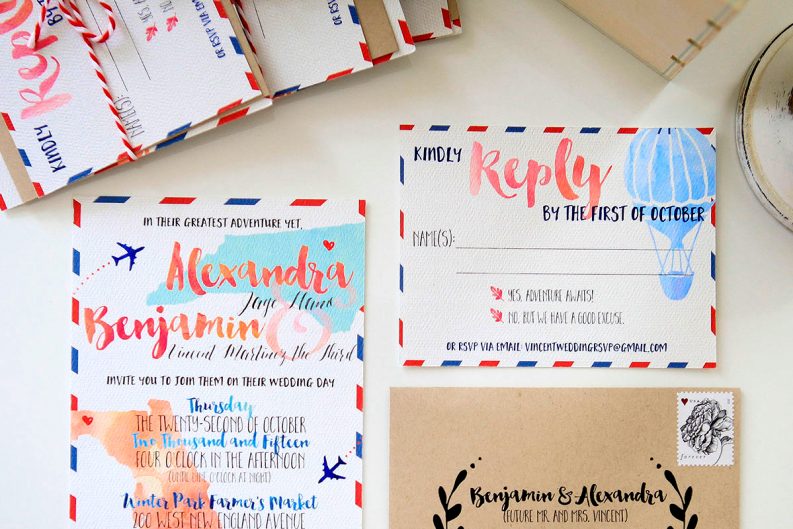 KINDLY Reply
BY
NAME(S):
OR RSVP VIA EM
OR RSVP VIA EMA
KINDLY Reply
BY THE FIRST OF OCTOBER
NAME(S):
YES, ADVENTURE AWAITS!
NO, BUT WE HAVE A GOOD EXCUSE.
OR RSVP VIA EMAIL: VINCENTWEDDINGRSVP@GMAIL.COM
IN THEIR GREATEST ADVENTURE YET,
Alexandra
&
Benjamin
Vincent Martinez the Third
INVITE YOU TO JOIN THEM ON THEIR WEDDING DAY
Thursday
THE TWENTY-SECOND OF OCTOBER
Two Thousand and Fifteen
FOUR O'CLOCK IN THE AFTERNOON
(UNTIL NINE O'CLOCK AT NIGHT)
Winter Park Farmer's Market
200 WEST NEW ENGLAND AVENUE
forever
Benjamin & Alexandra
(FUTURE MR. AND MRS. VINCENT)